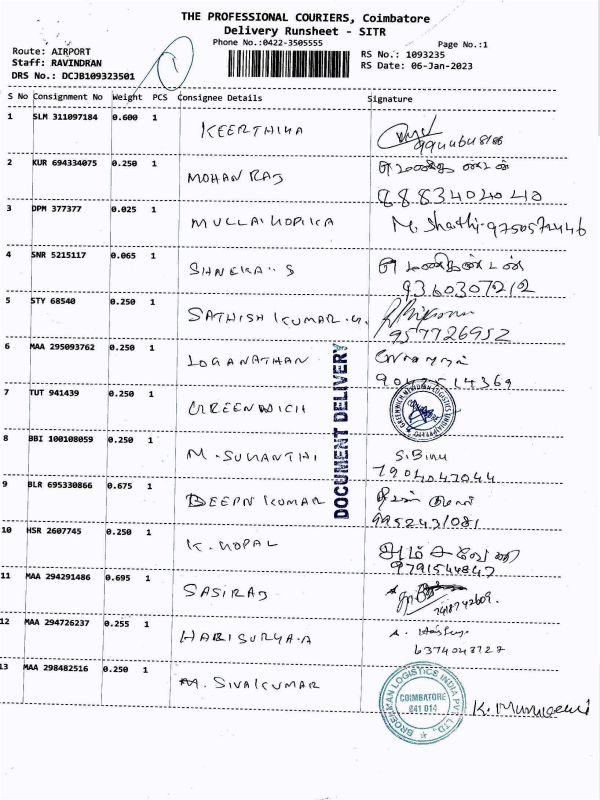 THE PROFESSIONAL COURIERS, Coimbatore
Delivery Runsheet - SITR
Phone No.:0422-3505555
Page No.:1
Route: AIRPORT
RS No.: 1093235
Staff: RAVINDRAN
RS Date: 06-Jan-2023
DRS No.: DCJB109323501
1
S No Consignment No Weight PCS Consignee Details Signature
1 SLM 311097184 0.600 1 KEERTHIKA
2 KUR 694334075 0.250 1 MOHAN RAJ
8883404040
3 DPM 377377 0.025 1 MULLAI GOPIKA M. Shathi-9750572446
4 SNR 5215117 0.065 1 SHNEKA S
9360307212
5 STY 68540 0.250 1 SATHISH KUMAR
957726952
6 MAA 295093762 0.250 1 LOGANATHAN
7 TUT 941439 0.250 1 GREENWICH
8 BBI 100108059 0.250 1 M. SUGANTHI S.Binu
7904047044
9 BLR 695330866 0.675 1 DEEPN KUMAR
9952431081
10 HSR 2607745 0.250 1 K. GOPAL
9791544847
11 MAA 294291486 0.695 1 SASIRAJ
12 MAA 294726237 0.255 1 HARISURYA.A
6374043727
13 MAA 298482516 0.250 1 M. SIVAKUMAR K. Murugesan
DOCUMENT DELIVERY
BROEKMAN LOGISTICS INDIA PVT. LTD.,
COIMBATORE
641 014